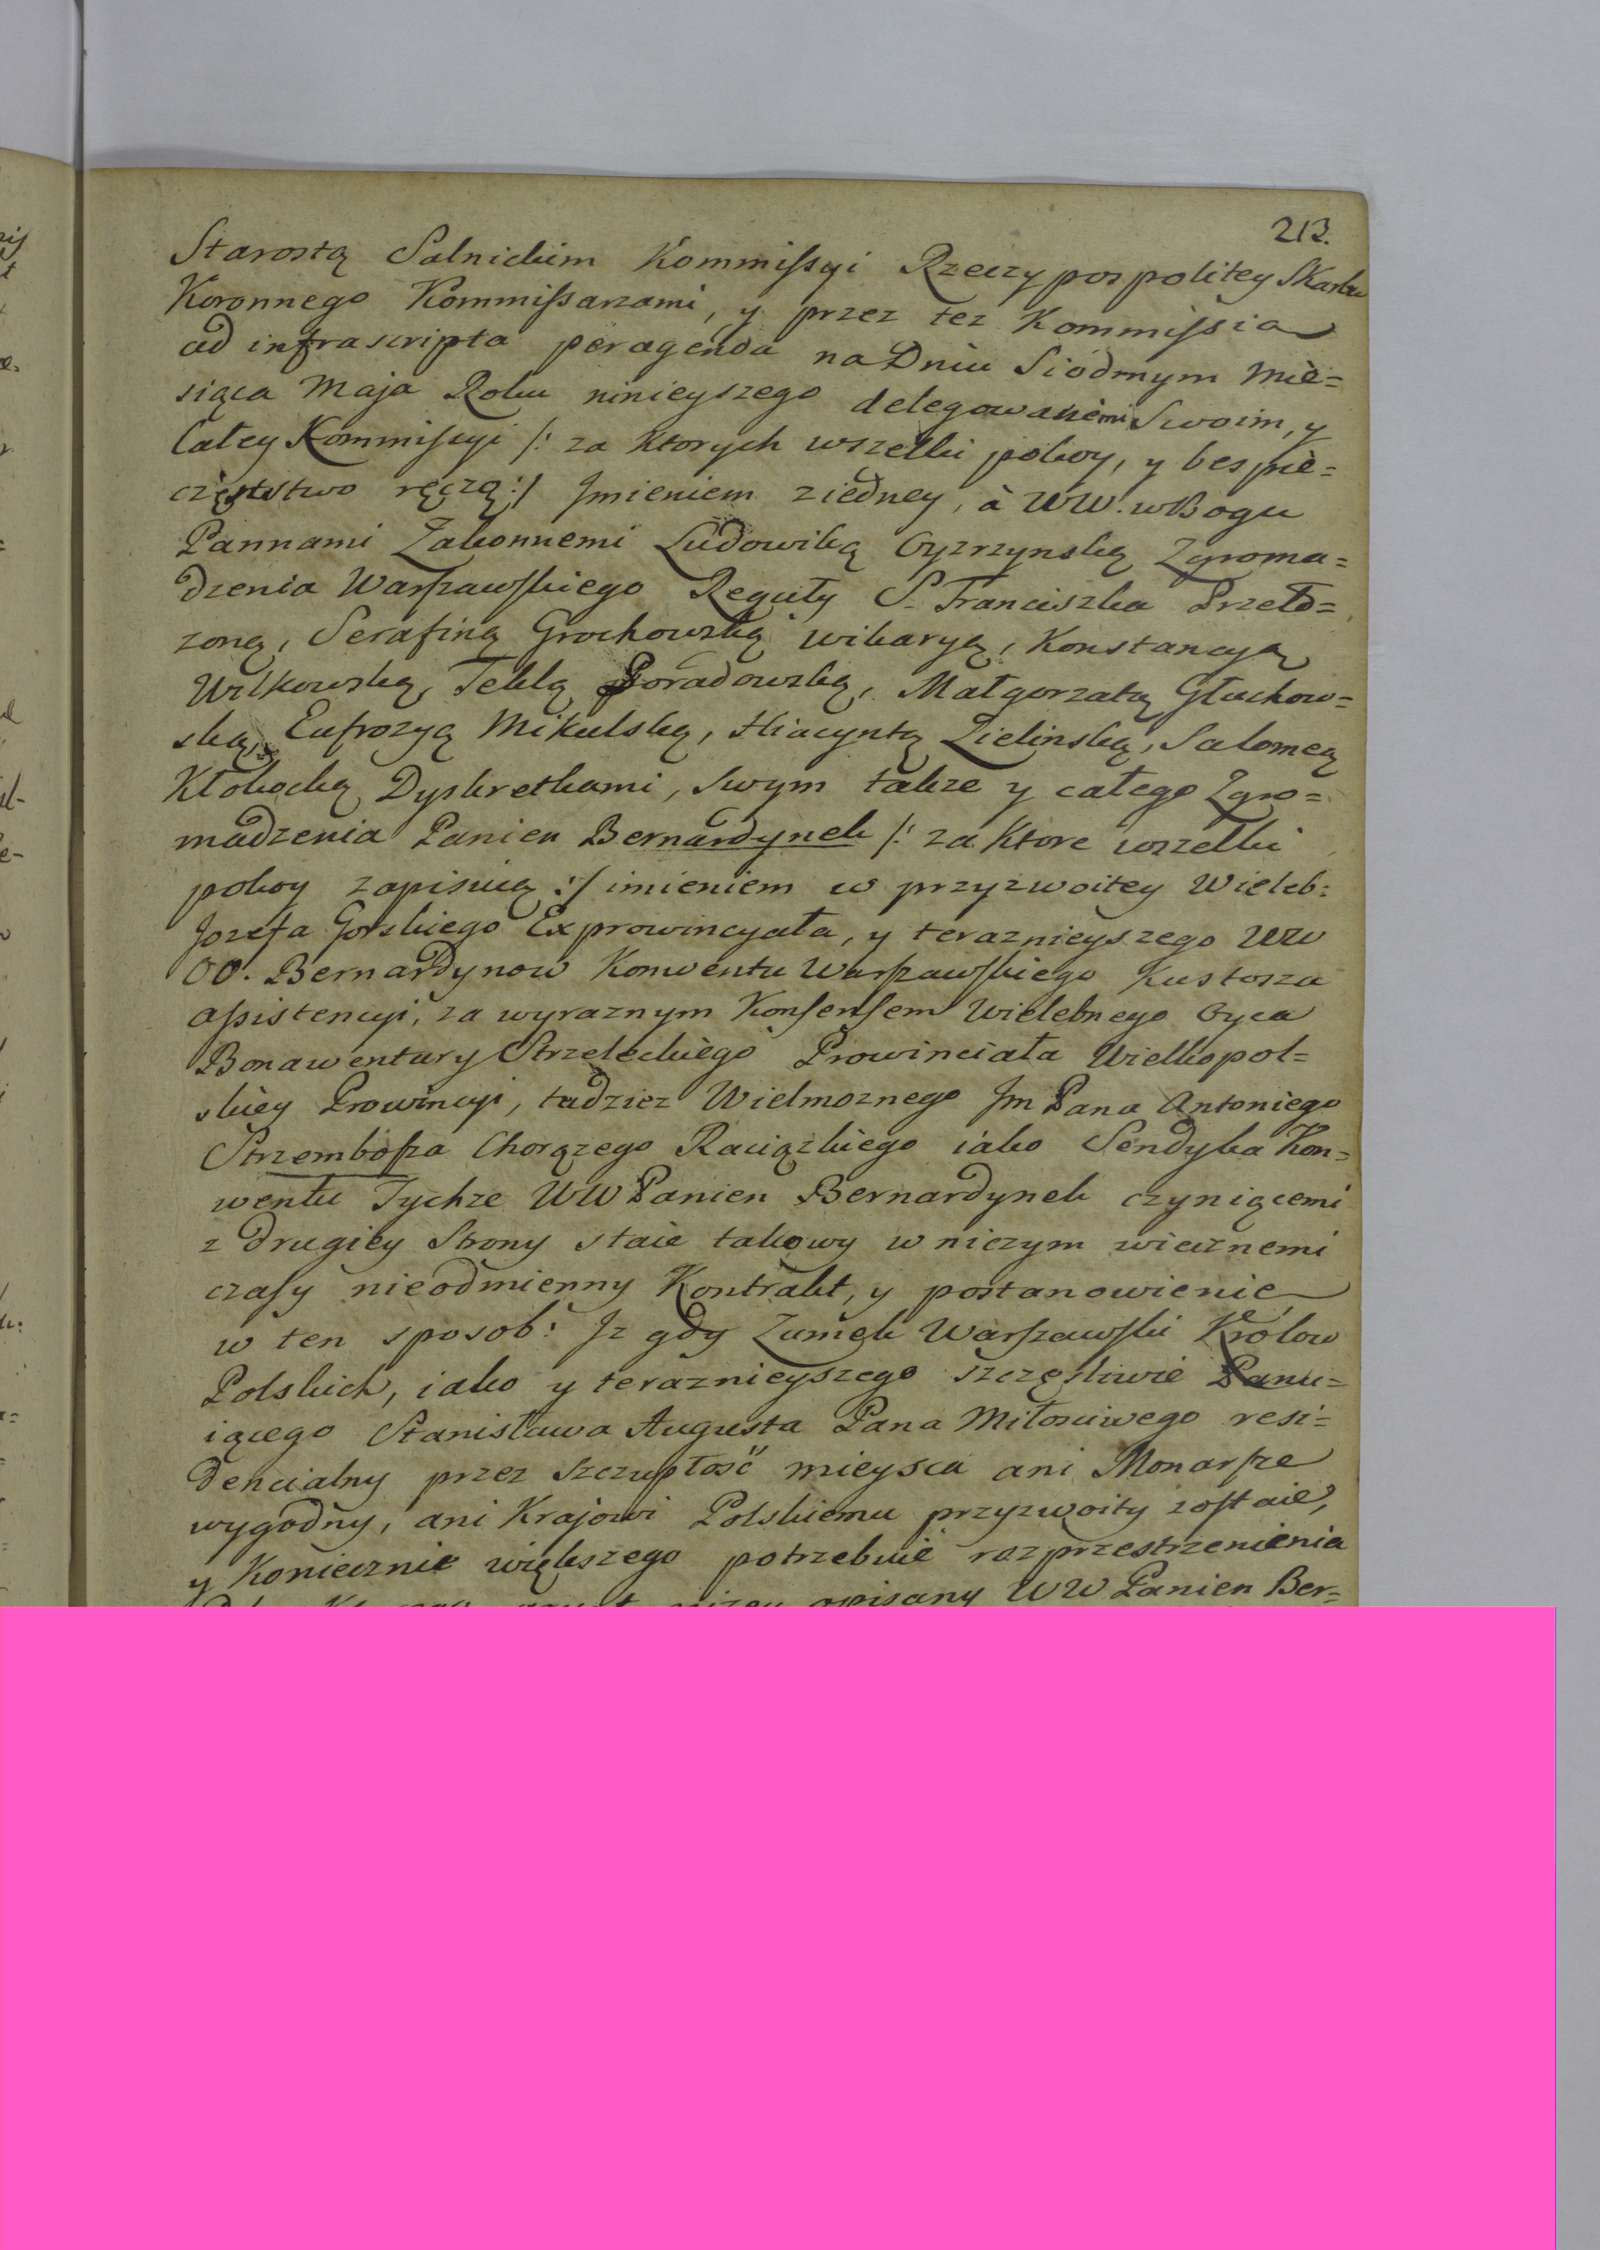 213.
Starostą Salnickim Kommissyi Rzeczypospolitey Skarbu
Koronnego Kommissarzami, y przez tez Kommissia
ad infrascripta peragenda na Dniu Siódmym Mie=
siąca Maja Roku ninieyszego delegowanemi Swoim, y
Całey Kommissyi /: za Ktorych wszelki pokoy, y bespie=
częstwo ręczą :/ Jmieniem z iedney, à WW. w Bogu
Pannami Zakonnemi Ludowiką Cyzrzynską Zgroma=
dzenia Warszawskiego Reguły S. Franciszka Przeło=
zoną, Serafiną Grochowską wikaryą, Konstancyą
Wilkowską, Teklą Poradowską, Małgorzatą Głuchow=
ską, Eufrozyą Mikulską, Hiacyntą Zielinską, Salomeą
Kłokocką Dyskretkami, swym takze y całego Zgro=
madzenia Panien Bernardynek /: za Ktore wszelki
pokoy zapisuią :/ imieniem w przyzwoitey Wieleb:
Jozefa Gorskiego Exprowincyała, y teraznieyszego WW
OO. Bernardynow Konwentu Warszawskiego Kustosza
assistencyi, za wyraznym Konsensem Wielebnego Oyca
Bonawentury Strzeleckiego Prowinciała Wielkopol=
skiey Prowincyi, tudziez Wielmoznego Jm Pana Antoniego
Strzembosza Chorązego Raciązkiego iako Sendyka Kon=
wentu Tychze WW Panien Bernardynek czyniącemi
z drugiey Strony staie takowy w niczym wiecznemi
czasy nieodmienny Kontrakt, y postanowienie
w ten sposob: Jz gdy Zamek Warszawski Królow
Polskich, iako y teraznieyszego szczęsliwie Panu=
iącego Stanisława Augusta Pana Miłosciwego resi=
dencialny przez szczupłość mieysca ani Monarsze
wygodny, ani Krajowi Polskiemu przyzwoity zostaie,
y Koniecznie większego potrzebuie rozprzestrzenienia
opisany WW Panien Ber=